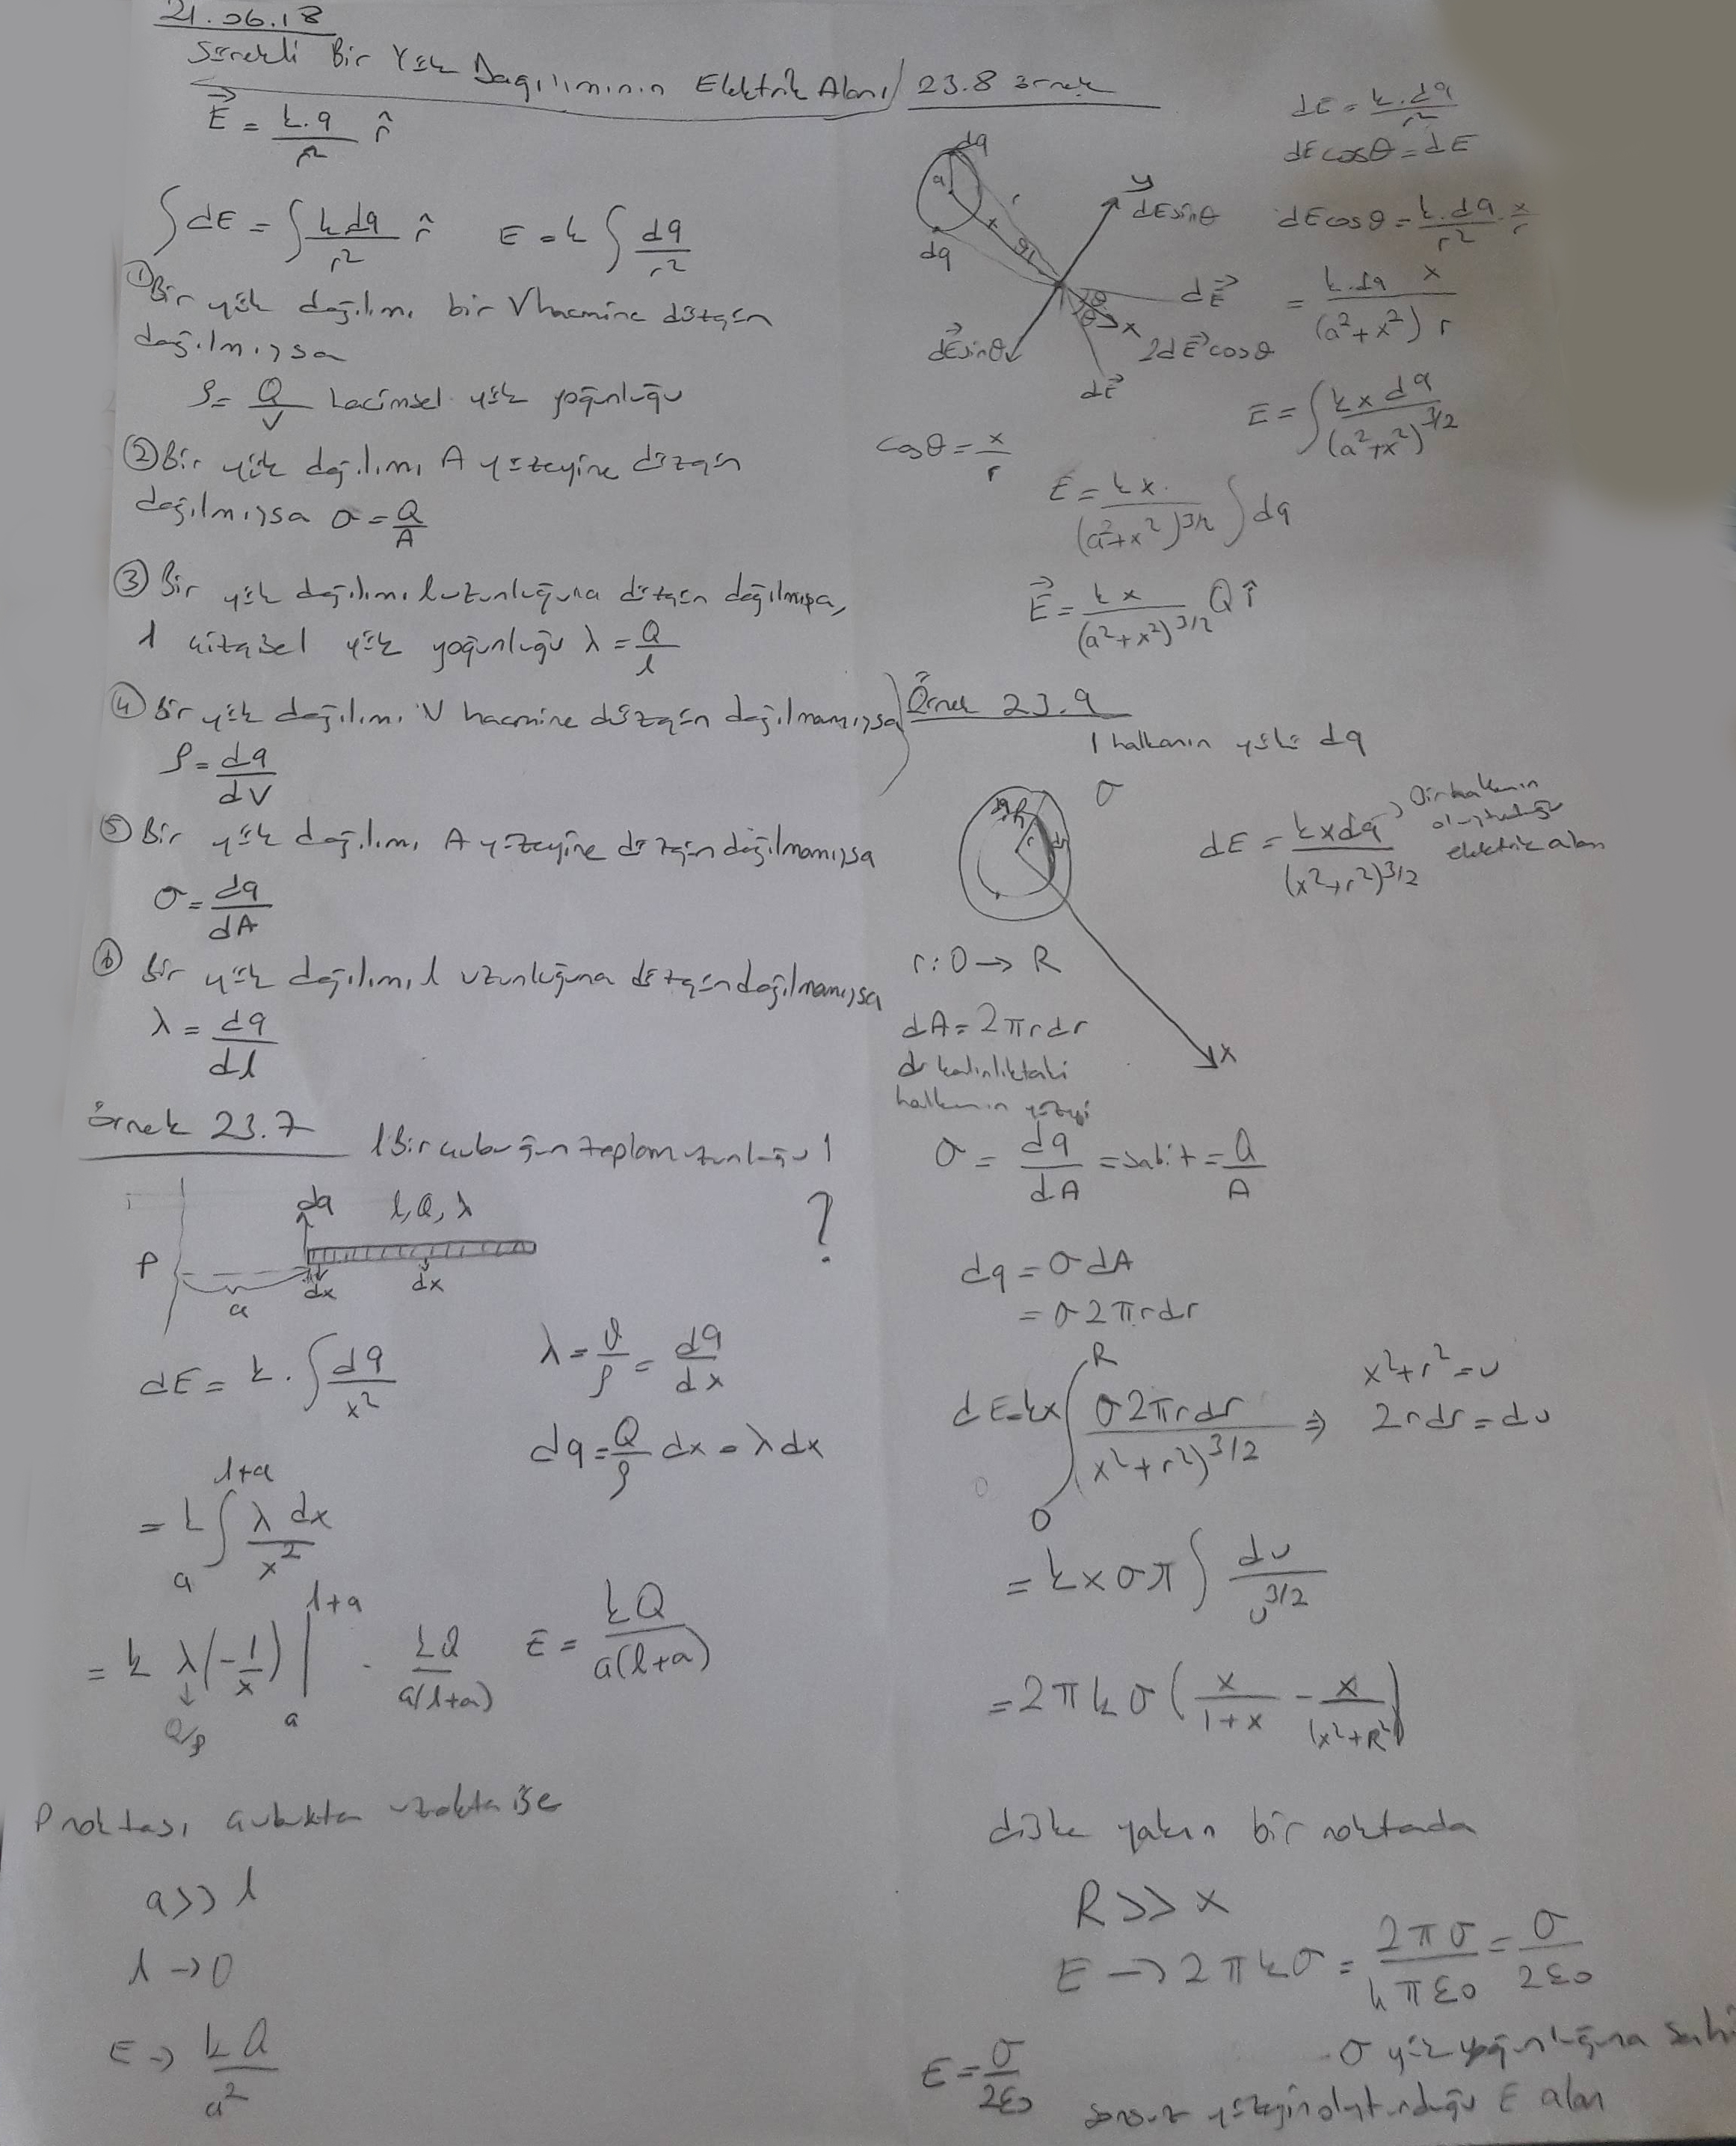 21.06.18
Sürekli Bir Yük Dağılımının Elektrik Alanı
E⃗ = k.q / r² r̂
∫dE = ∫ k dq / r² r̂   E = k ∫ dq / r²
① Bir yük dağılımı bir V hacmine düzgün
dağılmışsa
ρ = Q / V hacimsel yük yoğunluğu
② Bir yük dağılımı A yüzeyine düzgün
dağılmışsa σ = Q / A
③ Bir yük dağılımı l uzunluğuna düzgün dağılmışsa,
l çizgisel yük yoğunluğu λ = Q / l
④ Bir yük dağılımı V hacmine düzgün dağılmamışsa
ρ = dq / dV
⑤ Bir yük dağılımı A yüzeyine düzgün dağılmamışsa
σ = dq / dA
⑥ Bir yük dağılımı l uzunluğuna düzgün dağılmamışsa
λ = dq / dl
örnek 23.7   l Bir çubuğun toplam uzunluğu l
dq   l, Q, λ   ?
P   a   dx   dx
dE = k. ∫ dq / x²   λ = Q / l = dq / dx
dq = Q / l dx = λ dx
= k ∫ₐ^(l+a) λ dx / x²
= k λ (-1/x) |ₐ^(l+a)   kQ / a(l+a)   E = kQ / a(l+a)
Q/l
P noktası çubuktan uzakta ise
a >> l
l → 0
E → kQ / a²
23.8 örnek
dE = k.dq / r²
dE cosθ = dE
dE cosθ = k.dq / r² . x / r
= k.dq / (a²+x²) x / r
dq   a   r   x   θ   dq
y   dE⃗ sinθ   dE⃗   θ   θ   x
dE⃗ sinθ   2dE⃗ cosθ
dE⃗
E = ∫ kx dq / (a²+x²)^3/2
cosθ = x / r
E = kx / (a²+x²)^3/2 ∫ dq
E⃗ = kx / (a²+x²)^3/2 Q î
Örnek 23.9
1 halkanın yükü dq
σ
dE = kxdq / (x²+r²)^3/2   Bir halkanın
oluşturduğu
elektrik alan
R   r   x
r: 0 → R
dA = 2πrdr
dr kalınlıktaki
halkanın yüzeyi
σ = dq / dA = sabit = Q / A
dq = σ dA
= σ 2πrdr
dE = kx ∫₀^R σ2πrdr / (x²+r²)^3/2 ⇒ x²+r² = u
2rdr = du
= kxσπ ∫ du / u^3/2
= 2πkσ ( x / 1+x - x / (x²+R²) )
diske yakın bir noktada
R >> x
E → 2πkσ = 2πσ / 4πε0 = σ / 2ε0
E = σ / 2ε0   σ yük yoğunluğuna sahi
sonsuz yüzeyin oluşturduğu E alan